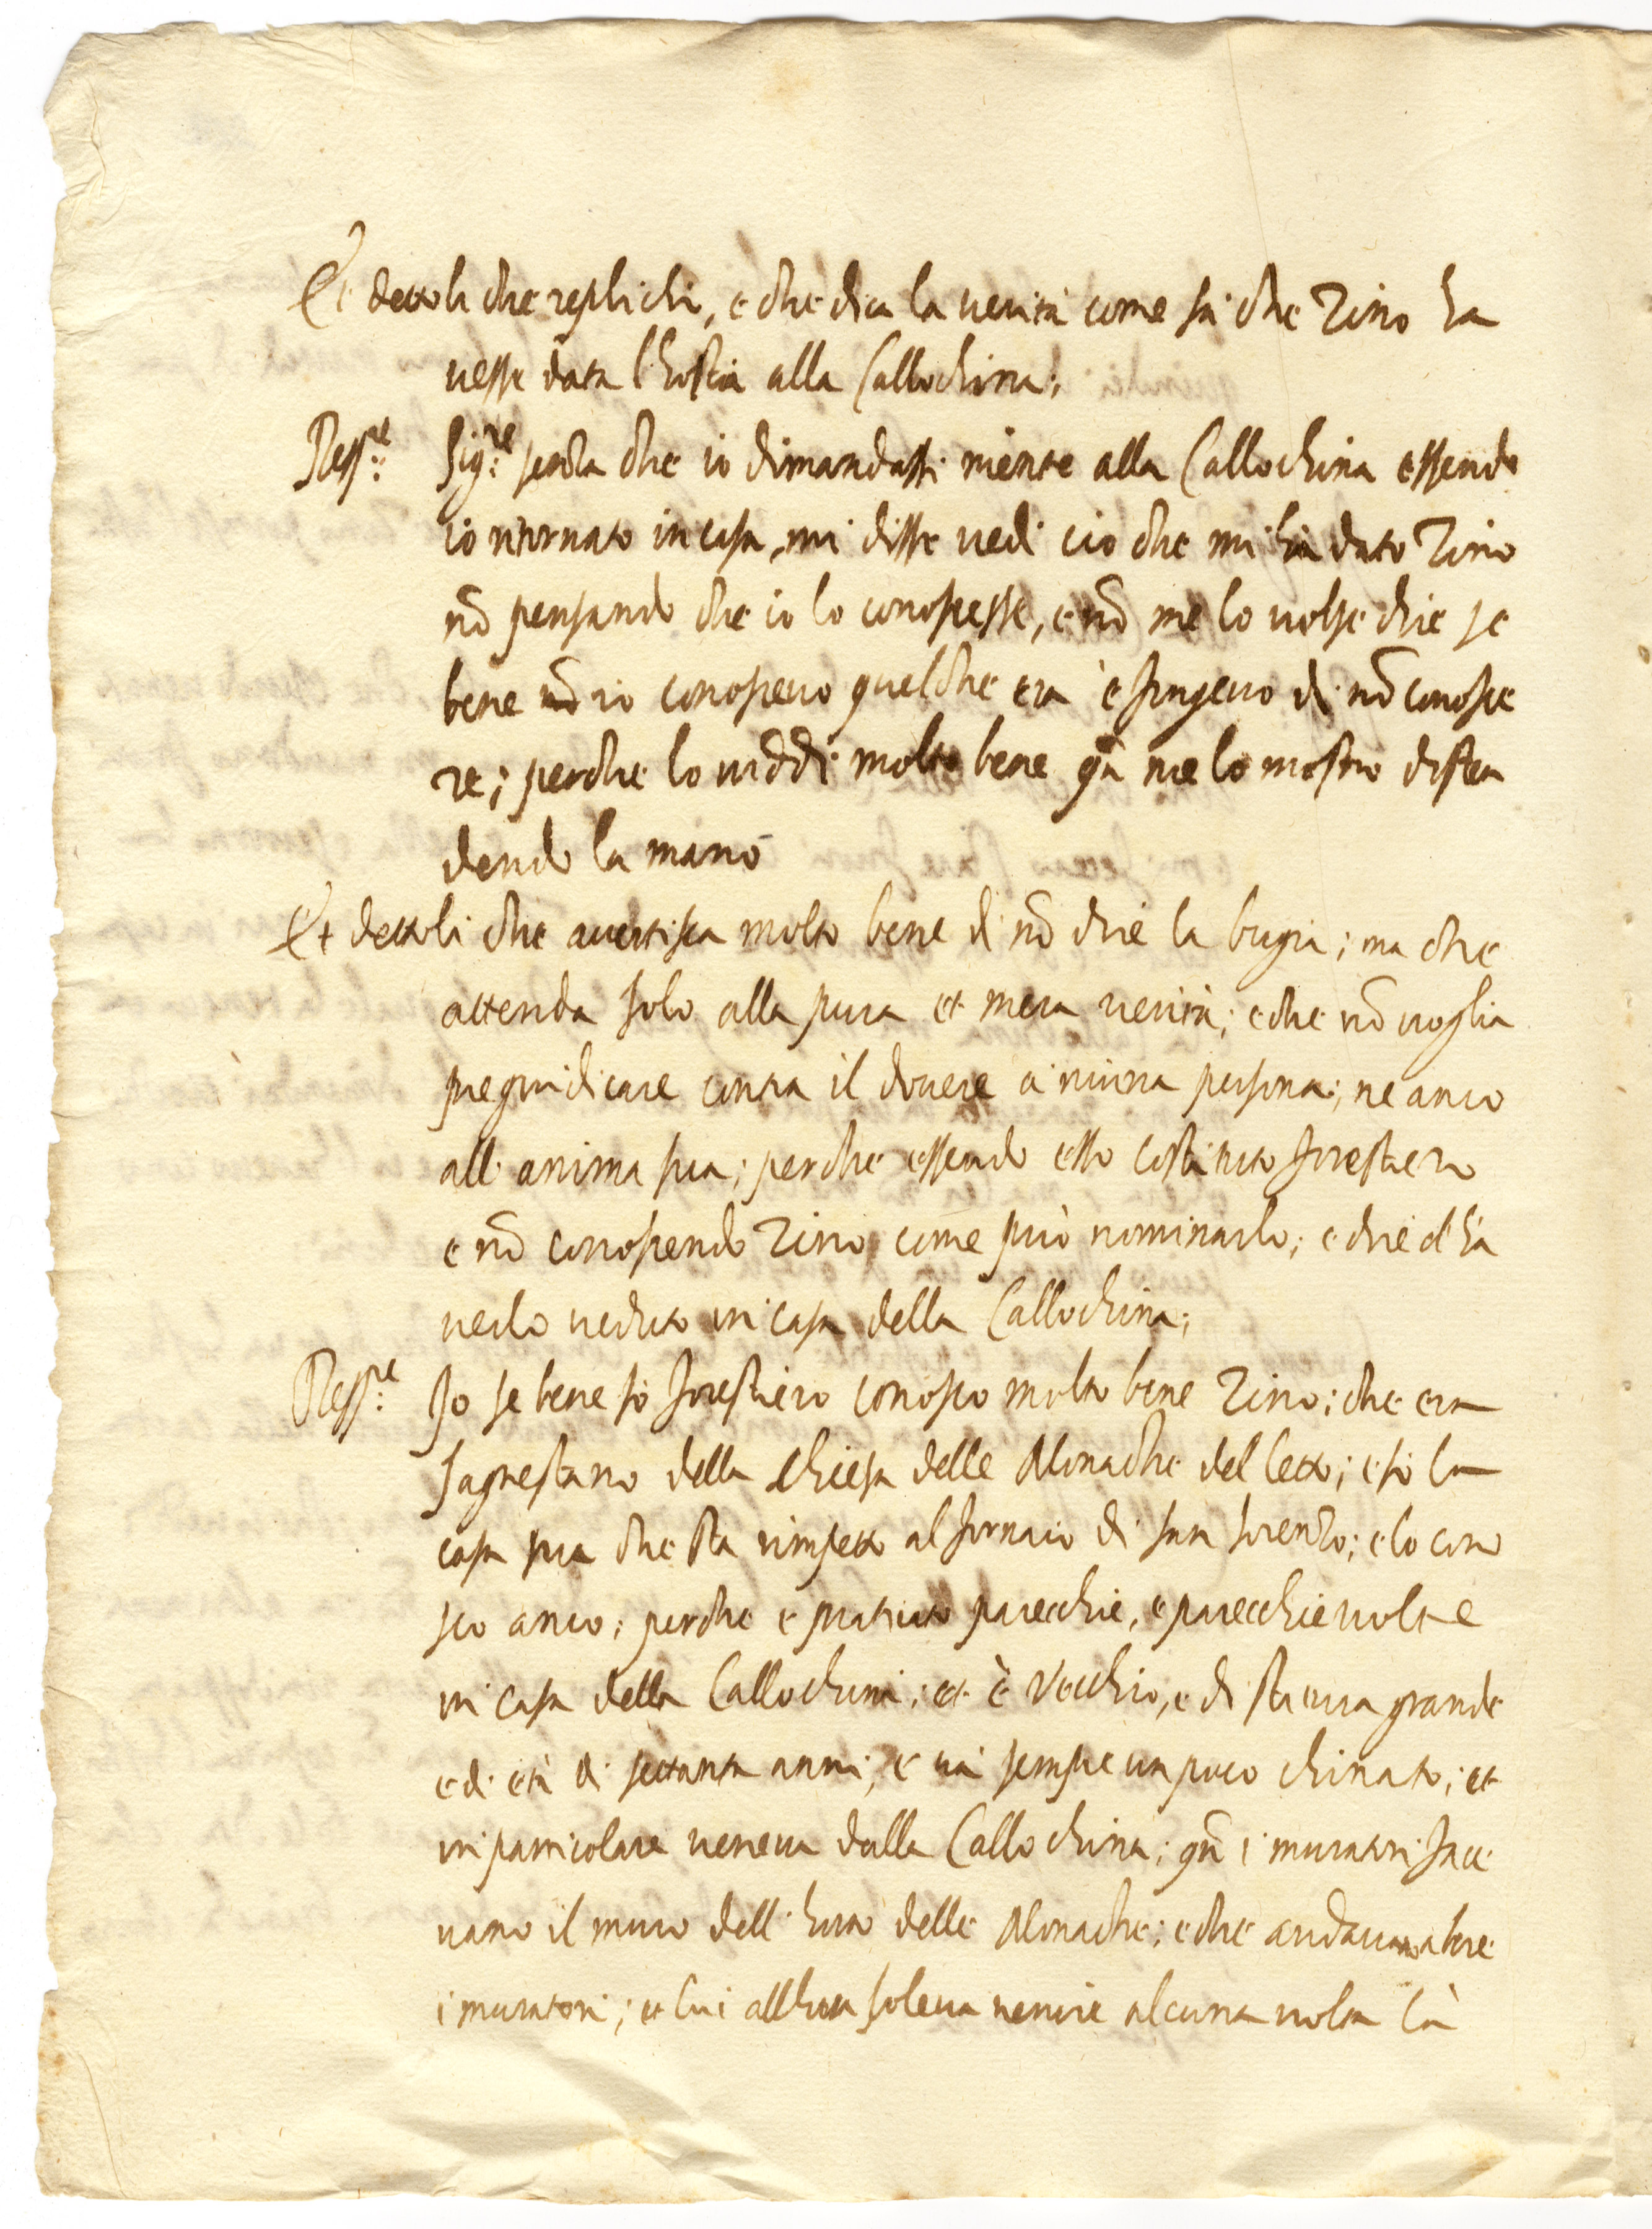 Et dettoli che replichi, e che dica la verità come sà che Tino ha
vesse data l'hostia alla Callochina;
Resp.re Sig.re senza che io dimandassi niente alla Callochina essendo
io ritornato in casa, mi disse vedi ciò che mi hà dato Tino
nō pensando che io lo conoscesse, e nō me lo volse dire se
bene io conoscevo quel che era e fingevo di nō conosce
re; perche lo viddi molto bene qñ me lo mostrò disten
dendo la mano
Et dettoli che avertisca molto bene di nō dire la bugia; ma che
attenda solo alla pura et mera verità; e che nō voglia
pregiudicare contra il dovere à niuna persona; ne anco
all'anima sua; perche essendo esso costituto forestiero
e nō conoscendo Tino come può nominarlo; e dire d'ha
verlo veduto in casa della Callochina;
Resp.re Io se bene sò forestiero conosco molto bene Tino; che era
sagrestano della chiesa delle Monache del letto; e sò la
casa sua che sta rimpetto al fornaio di san Lorenzo; e lo cono
sco anco; perche e praticato parecchie, e parecchie volte
in casa della Callochina; et è vecchio, e di statura grande
e di età di settanta anni; e và sempre un poco chinato; et
in particolare veneva dalla Callochina; qñ i muratori face
vano il muro dell'horto delle Monache; e che andavano a bere
i muratori; et lui all'hora soleva venire alcuna volta là